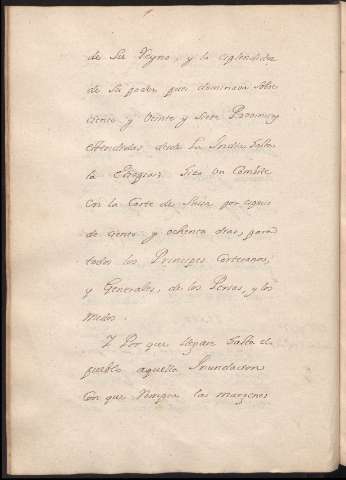 de Su Reyno, y la esplendidez
de Su poder, que dominava sobre
ciento y veinte y siete Provincias
estendidas desde la India hasta
la Etiopia. Hizo un Combite
en la Corte de Susa por espacio
de ciento y ochenta dias, para
todos los Principes Cortesanos,
y Generales, de los Persas, y los
Medos.
Y Por que llegara hasta el
pueblo aquella Inundacion
con que las margenes